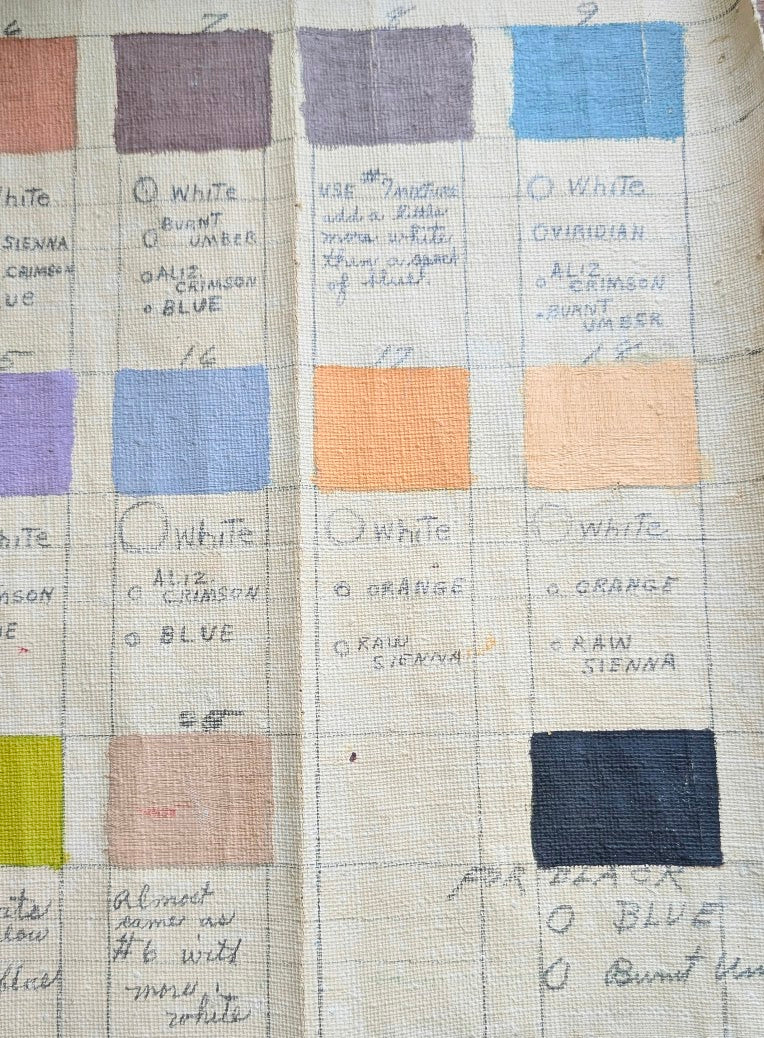 6
7
8
9
hite
SIENNA
CRIMSON
UE
WHITE
BURNT
UMBER
ALIZ.
CRIMSON
BLUE
USE #7 MIXTURE
add a little
more white
then a speck
of blue.
WHITE
VIRIDIAN
ALIZ.
CRIMSON
BURNT
UMBER
5
16
17
18
HITE
MSON
UE
WHITE
ALIZ.
CRIMSON
BLUE
WHITE
ORANGE
RAW
SIENNA
WHITE
ORANGE
RAW
SIENNA
ite
low
blue
Almost
same as
#6 with
more
white
FOR BLACK
BLUE
Burnt Um